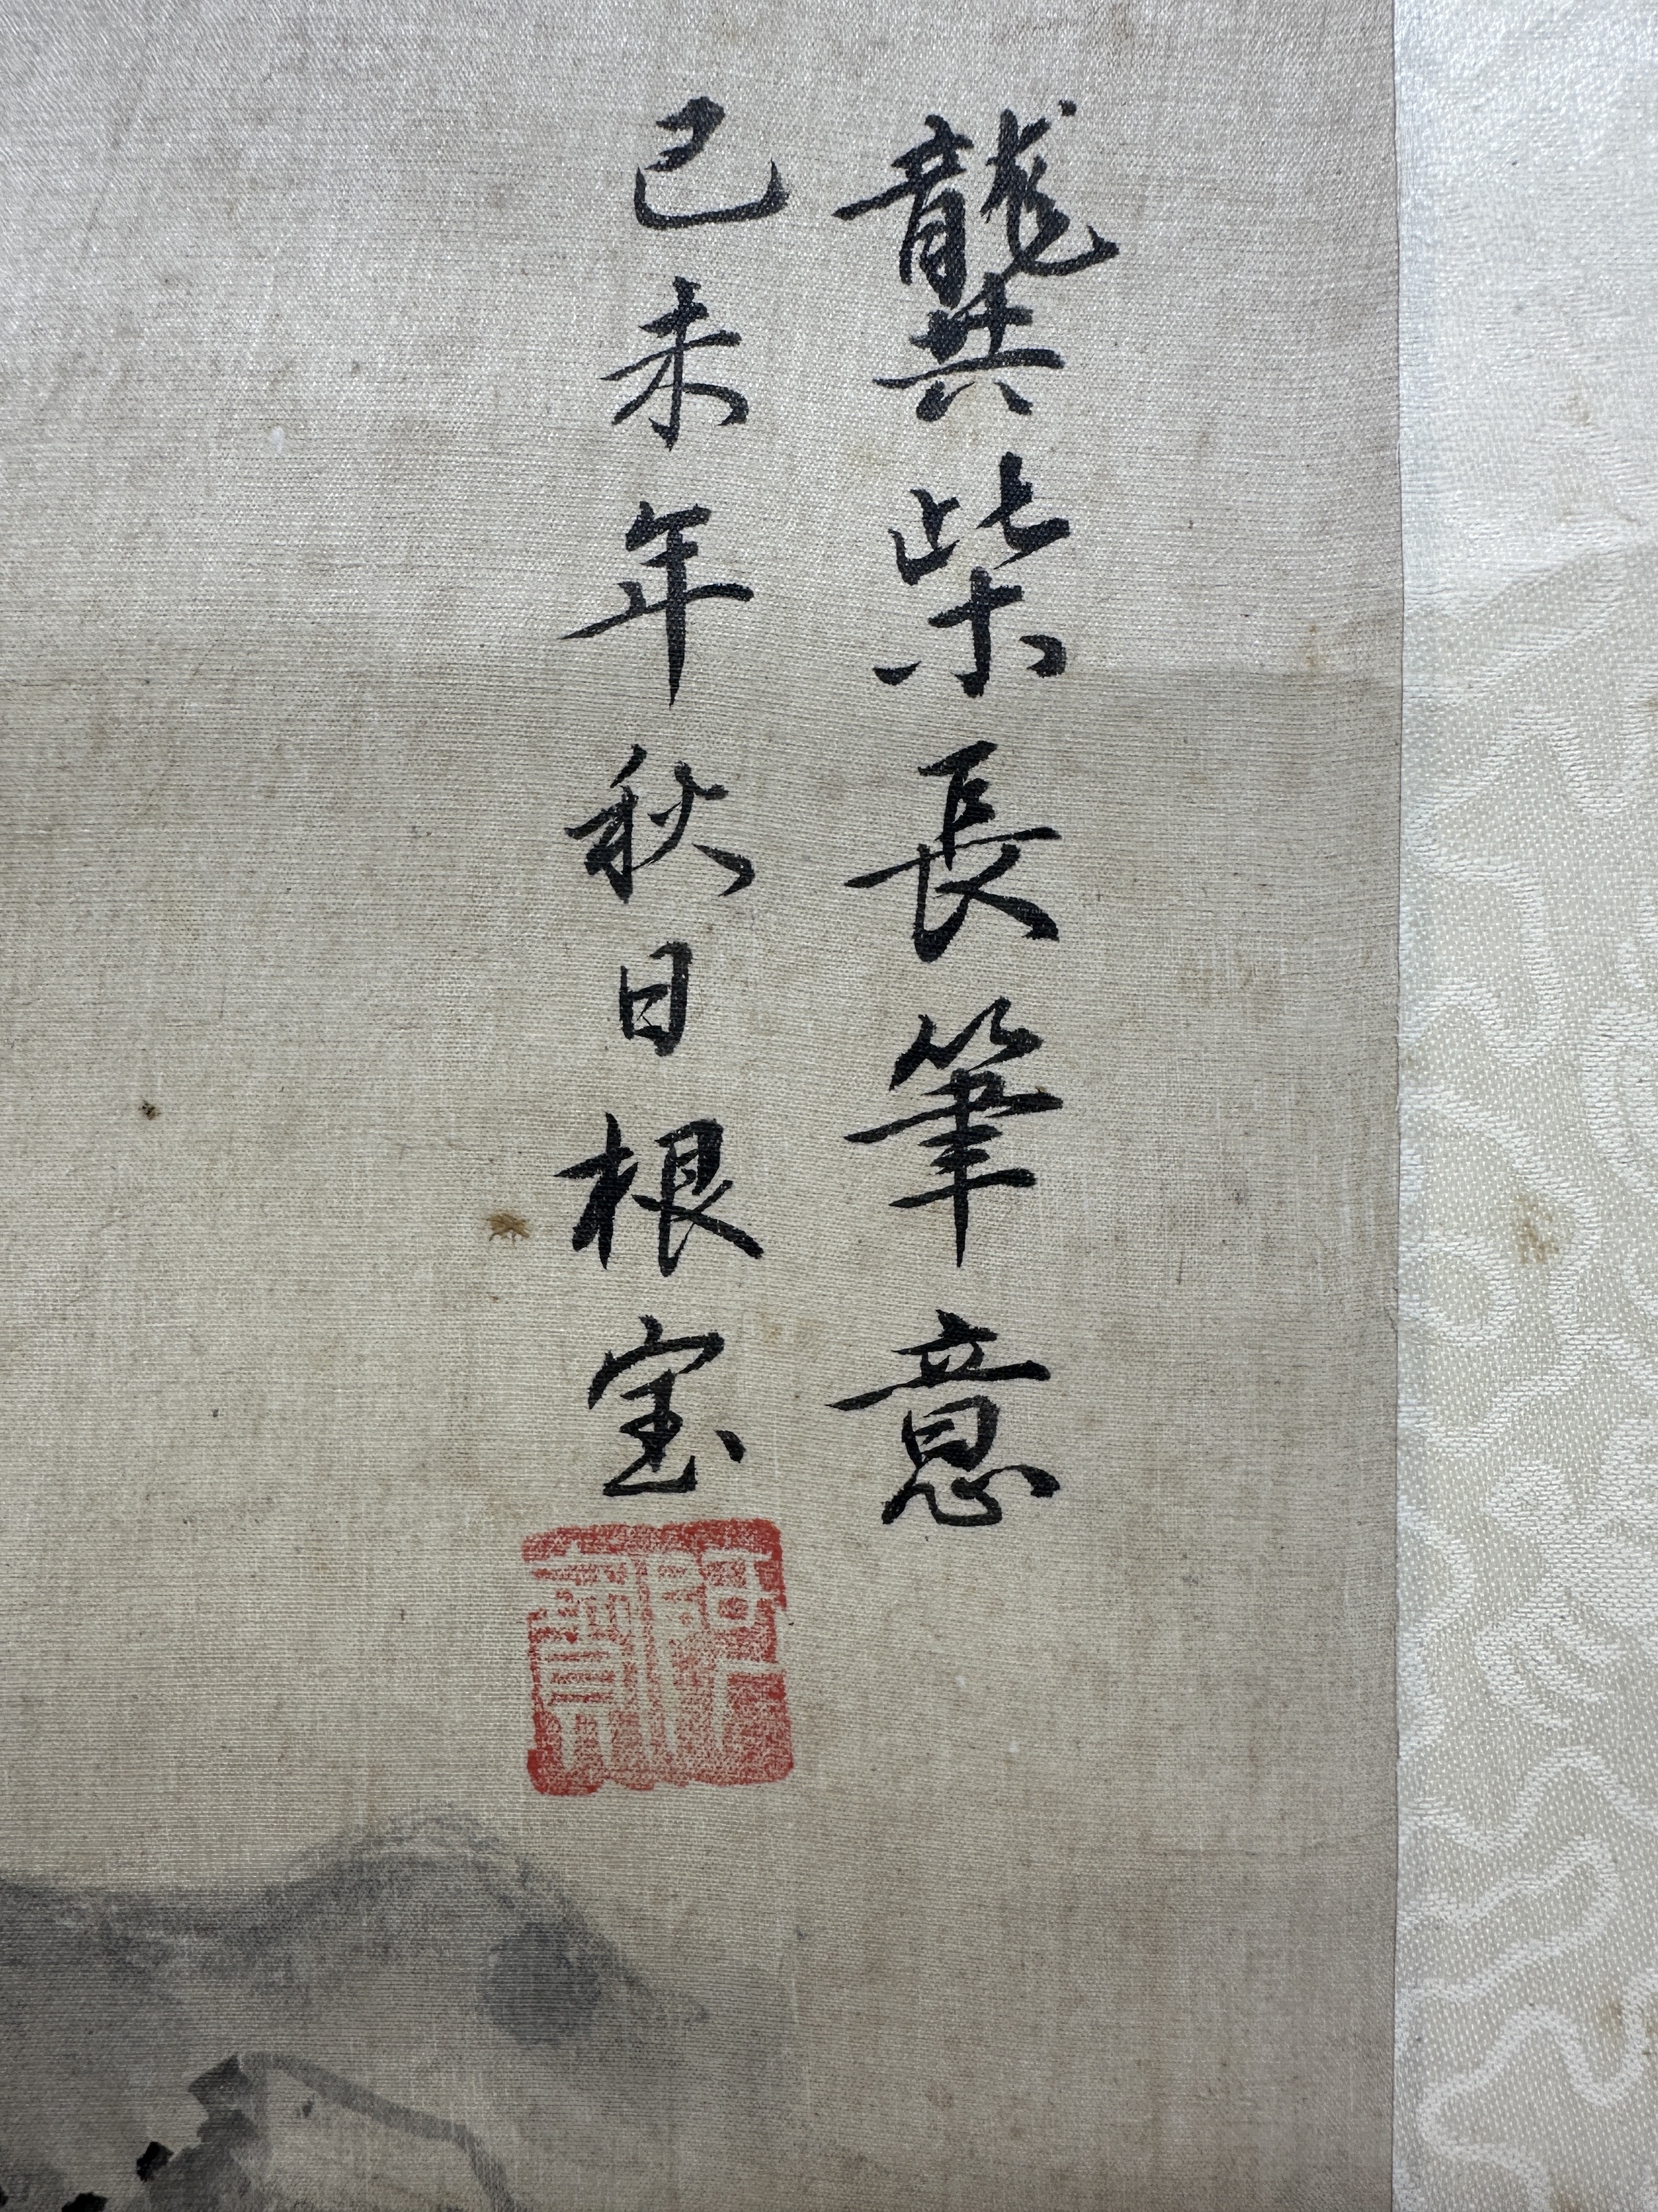 龔柴長筆意
己未年秋日根宝